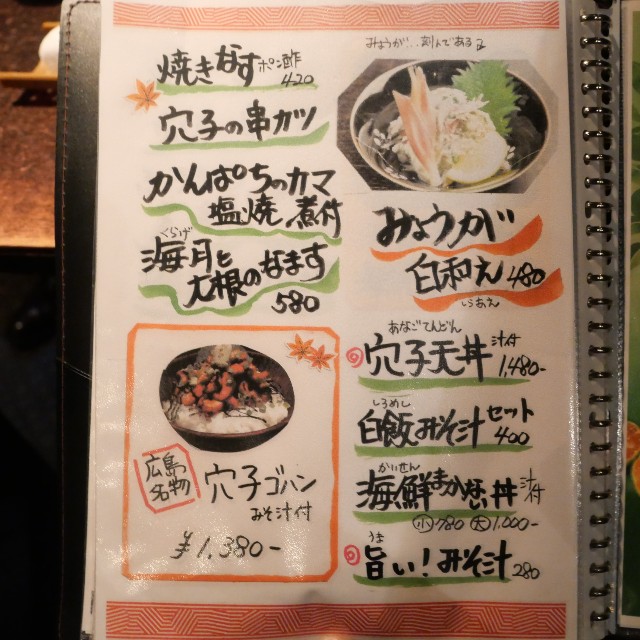 焼きなす ポン酢
420
穴子の串カツ
かんぱちのカマ
塩焼 煮付
くらげ
海月と
大根のなます
580
広島
名物
穴子ゴハン
みそ汁付
¥1,380-
みょうが…刻んである
みょうが
白和え 480
しらあえ
あなごてんどん
穴子天丼 汁付
1,480-
しろめし
白飯みそ汁セット
400
かいせん
海鮮まかない丼 汁付
小780 大1,000-
うま
旨い!みそ汁 280